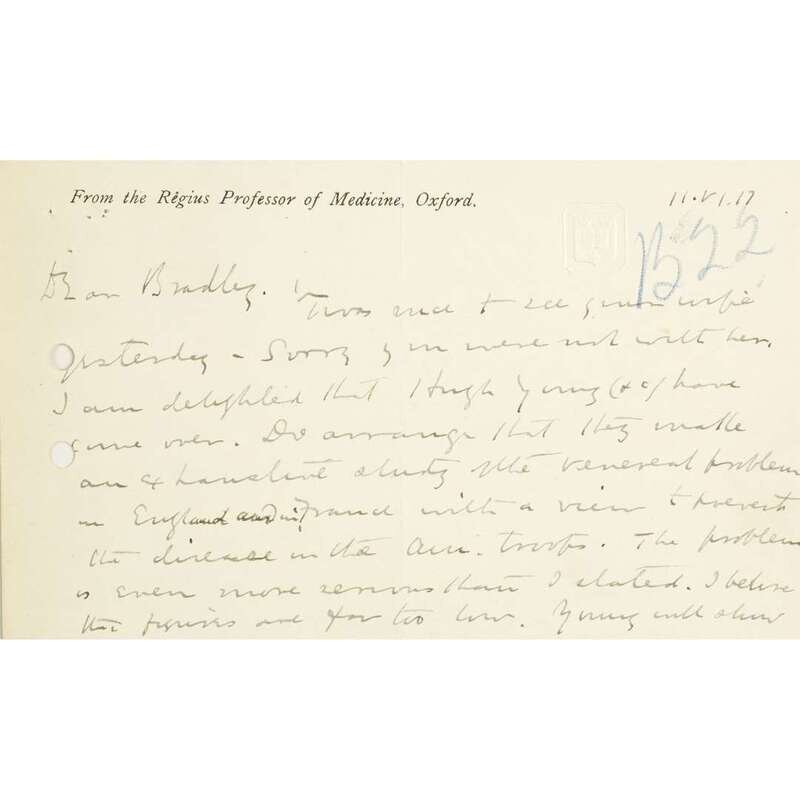 From the Regius Professor of Medicine, Oxford.
11.VI.17
B22
Dear Bradley. 'Twas nice to see your wife
yesterday - Sorry you were not with her.
I am delighted that Hugh Young (& Co) have
come over. Do arrange that they make
an exhaustive study of the venereal problem
in England and in France with a view to prevent
the disease in the Am. troops. The problem
is even more serious than I stated. I believe
the figures are far too low. Young will show